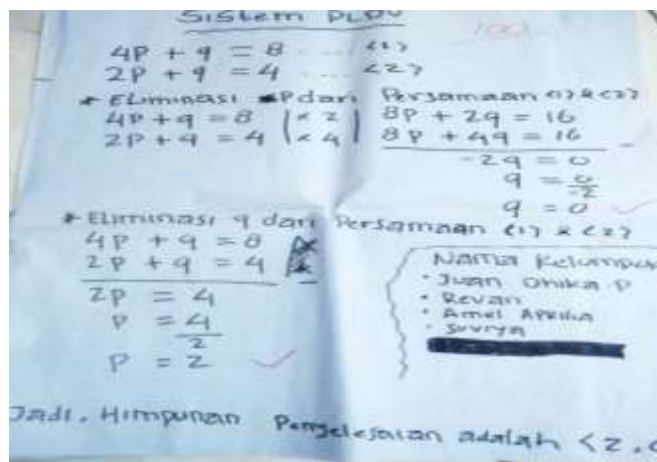 Sistem PLDV
100
4P + q = 8 .... <1>
2P + q = 4 .... <2>
* Eliminasi P dari Persamaan <1> & <2>
4P + q = 8 | × 2 | 8P + 2q = 16
2P + q = 4 | × 4 | 8P + 4q = 16
-2q = 0
q = 0/-2
q = 0 ✓
* Eliminasi q dari Persamaan <1> & <2>
4P + q = 8
2P + q = 4
2P = 4
P = 4/2
P = 2 ✓
Nama Kelompok
• Juan Dhika P
• Revan
• Amel Aprilia
• Suvrya
Jadi, Himpunan Penyelesaian adalah <2,